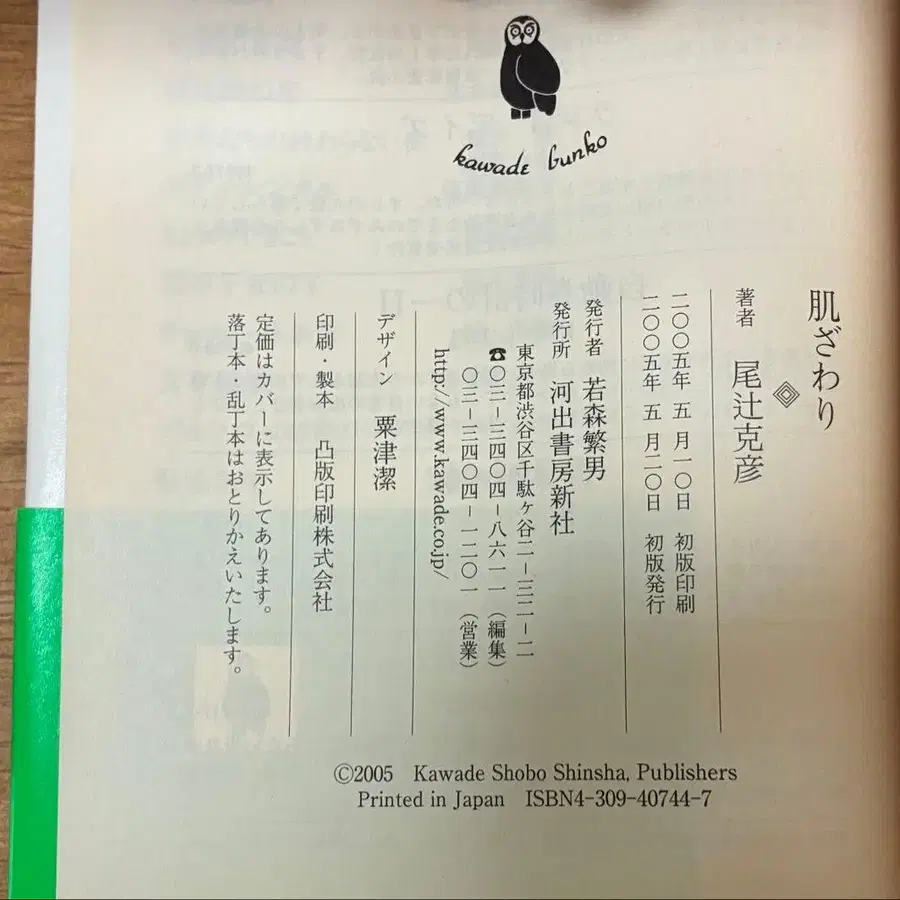 kawade bunko
肌ざわり
著者 尾辻克彦
二〇〇五年 五 月一〇日 初版印刷
二〇〇五年 五 月二〇日 初版発行
発行者 若森繁男
発行所 河出書房新社
東京都渋谷区千駄ヶ谷二-三二-二
☎〇三-三四〇四-八六一一(編集)
〇三-三四〇四-一二〇一(営業)
http://www.kawade.co.jp/
デザイン 粟津潔
印刷・製本 凸版印刷株式会社
定価はカバーに表示してあります。
落丁本・乱丁本はおとりかえいたします。
©2005 Kawade Shobo Shinsha, Publishers
Printed in Japan ISBN4-309-40744-7